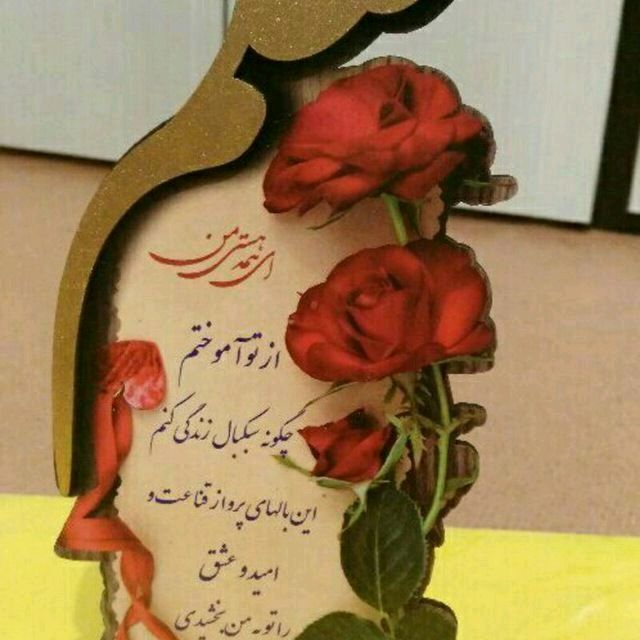 ای همه هستی من
از تو آموختم
چگونه سبکبال زندگی کنم
این بالهای پرواز قناعت و
امید و عشق
را تو به من بخشیدی